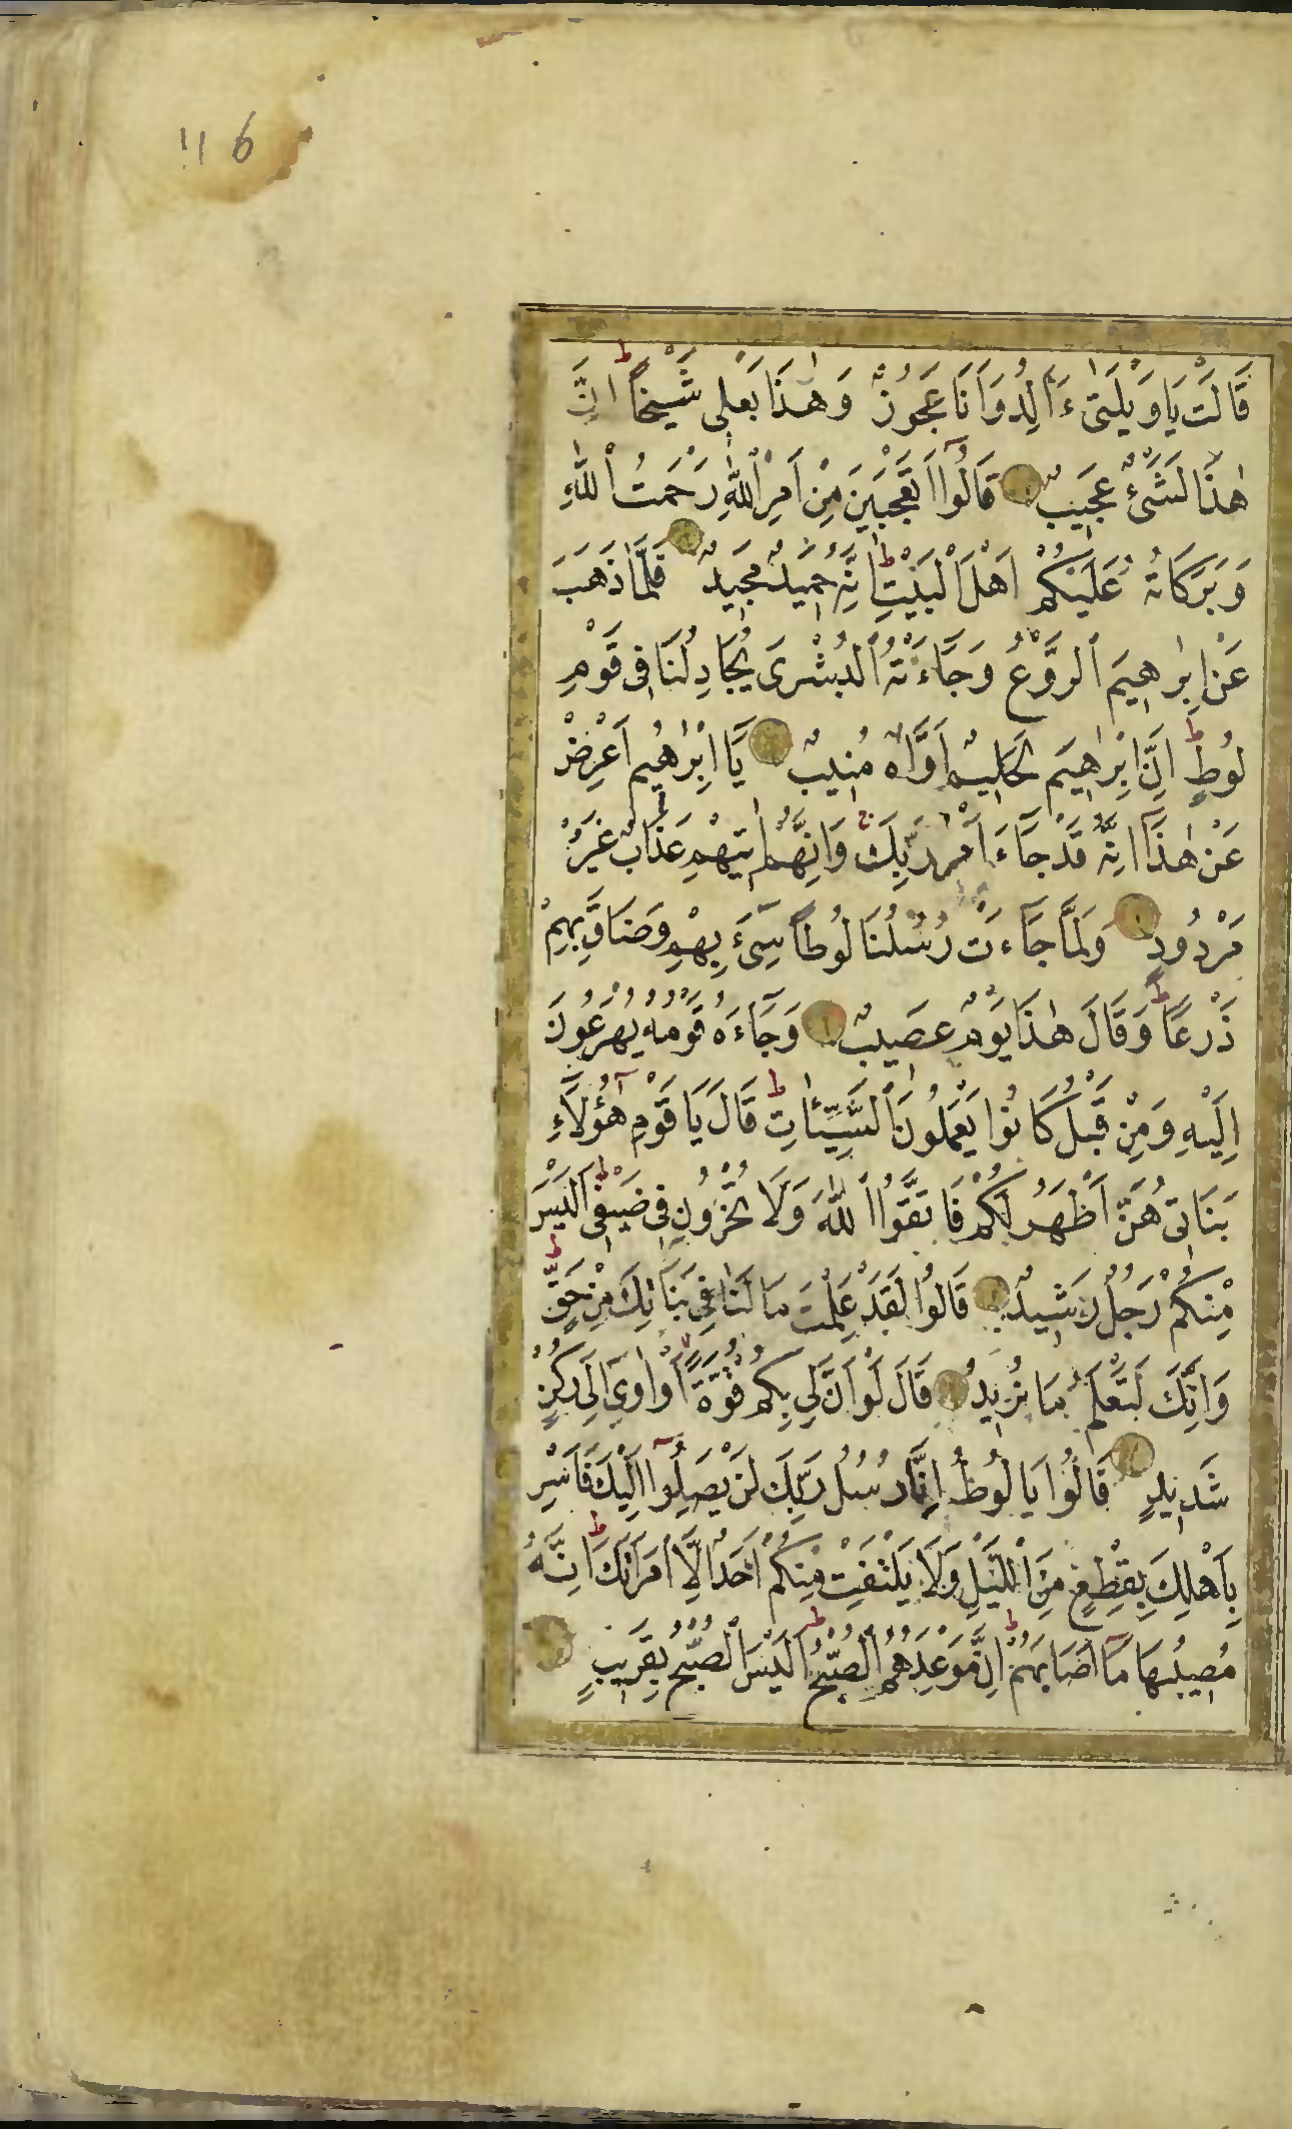 116
قَالَتْ يَا وَيْلَتٰى ءَاَلِدُ وَاَنَا عَجُوزٌ وَهٰذَا بَعْلِى شَيْخًا ط اِنَّ
هٰذَا لَشَىْءٌ عَجِيبٌ قَالُوٓا اَتَعْجَبِينَ مِنْ اَمْرِ اللّٰهِ رَحْمَتُ اللّٰهِ
وَبَرَكَاتُهُ عَلَيْكُمْ اَهْلَ الْبَيْتِ ط اِنَّهُ حَمِيدٌ مَجِيدٌ فَلَمَّا ذَهَبَ
عَنْ اِبْرٰهِيمَ الرَّوْعُ وَجَآءَتْهُ الْبُشْرَى يُجَادِلُنَا فِى قَوْمِ
لُوطٍ ط اِنَّ اِبْرٰهِيمَ لَحَلِيمٌ اَوَّاهٌ مُنِيبٌ يَٓا اِبْرٰهِيمُ اَعْرِضْ
عَنْ هٰذَآ اِنَّهُ قَدْ جَآءَ اَمْرُ رَبِّكَ ج وَاِنَّهُمْ اٰتِيهِمْ عَذَابٌ غَيْرُ
مَرْدُودٍ وَلَمَّا جَآءَتْ رُسُلُنَا لُوطًا سِىٓءَ بِهِمْ وَضَاقَ بِهِمْ
ذَرْعًا ط وَقَالَ هٰذَا يَوْمٌ عَصِيبٌ وَجَآءَهُ قَوْمُهُ يُهْرَعُونَ
اِلَيْهِ وَمِنْ قَبْلُ كَانُوا يَعْمَلُونَ السَّيِّئٰاتِ ط قَالَ يَا قَوْمِ هٰٓؤُلَآءِ
بَنَاتِى هُنَّ اَطْهَرُ لَكُمْ فَاتَّقُوا اللّٰهَ وَلَا تُخْزُونِ فِى ضَيْفِى ط اَلَيْسَ
مِنْكُمْ رَجُلٌ رَشِيدٌ قَالُوا لَقَدْ عَلِمْتَ مَا لَنَا فِى بَنَاتِكَ مِنْ حَقٍّ ط
وَاِنَّكَ لَتَعْلَمُ مَا نُرِيدُ قَالَ لَوْ اَنَّ لِى بِكُمْ قُوَّةً اَوْ اٰوِىٓ اِلَى رُكْنٍ
شَدِيدٍ قَالُوا يَا لُوطُ اِنَّا رُسُلُ رَبِّكَ لَنْ يَصِلُوٓا اِلَيْكَ فَاَسْرِ
بِاَهْلِكَ بِقِطْعٍ مِنَ الَّيْلِ وَلَا يَلْتَفِتْ مِنْكُمْ اَحَدٌ اِلَّا امْرَاَتَكَ ط اِنَّهُ
مُصِيبُهَا مَآ اَصَابَهُمْ ط اِنَّ مَوْعِدَهُمُ الصُّبْحُ ط اَلَيْسَ الصُّبْحُ بِقَرِيبٍ